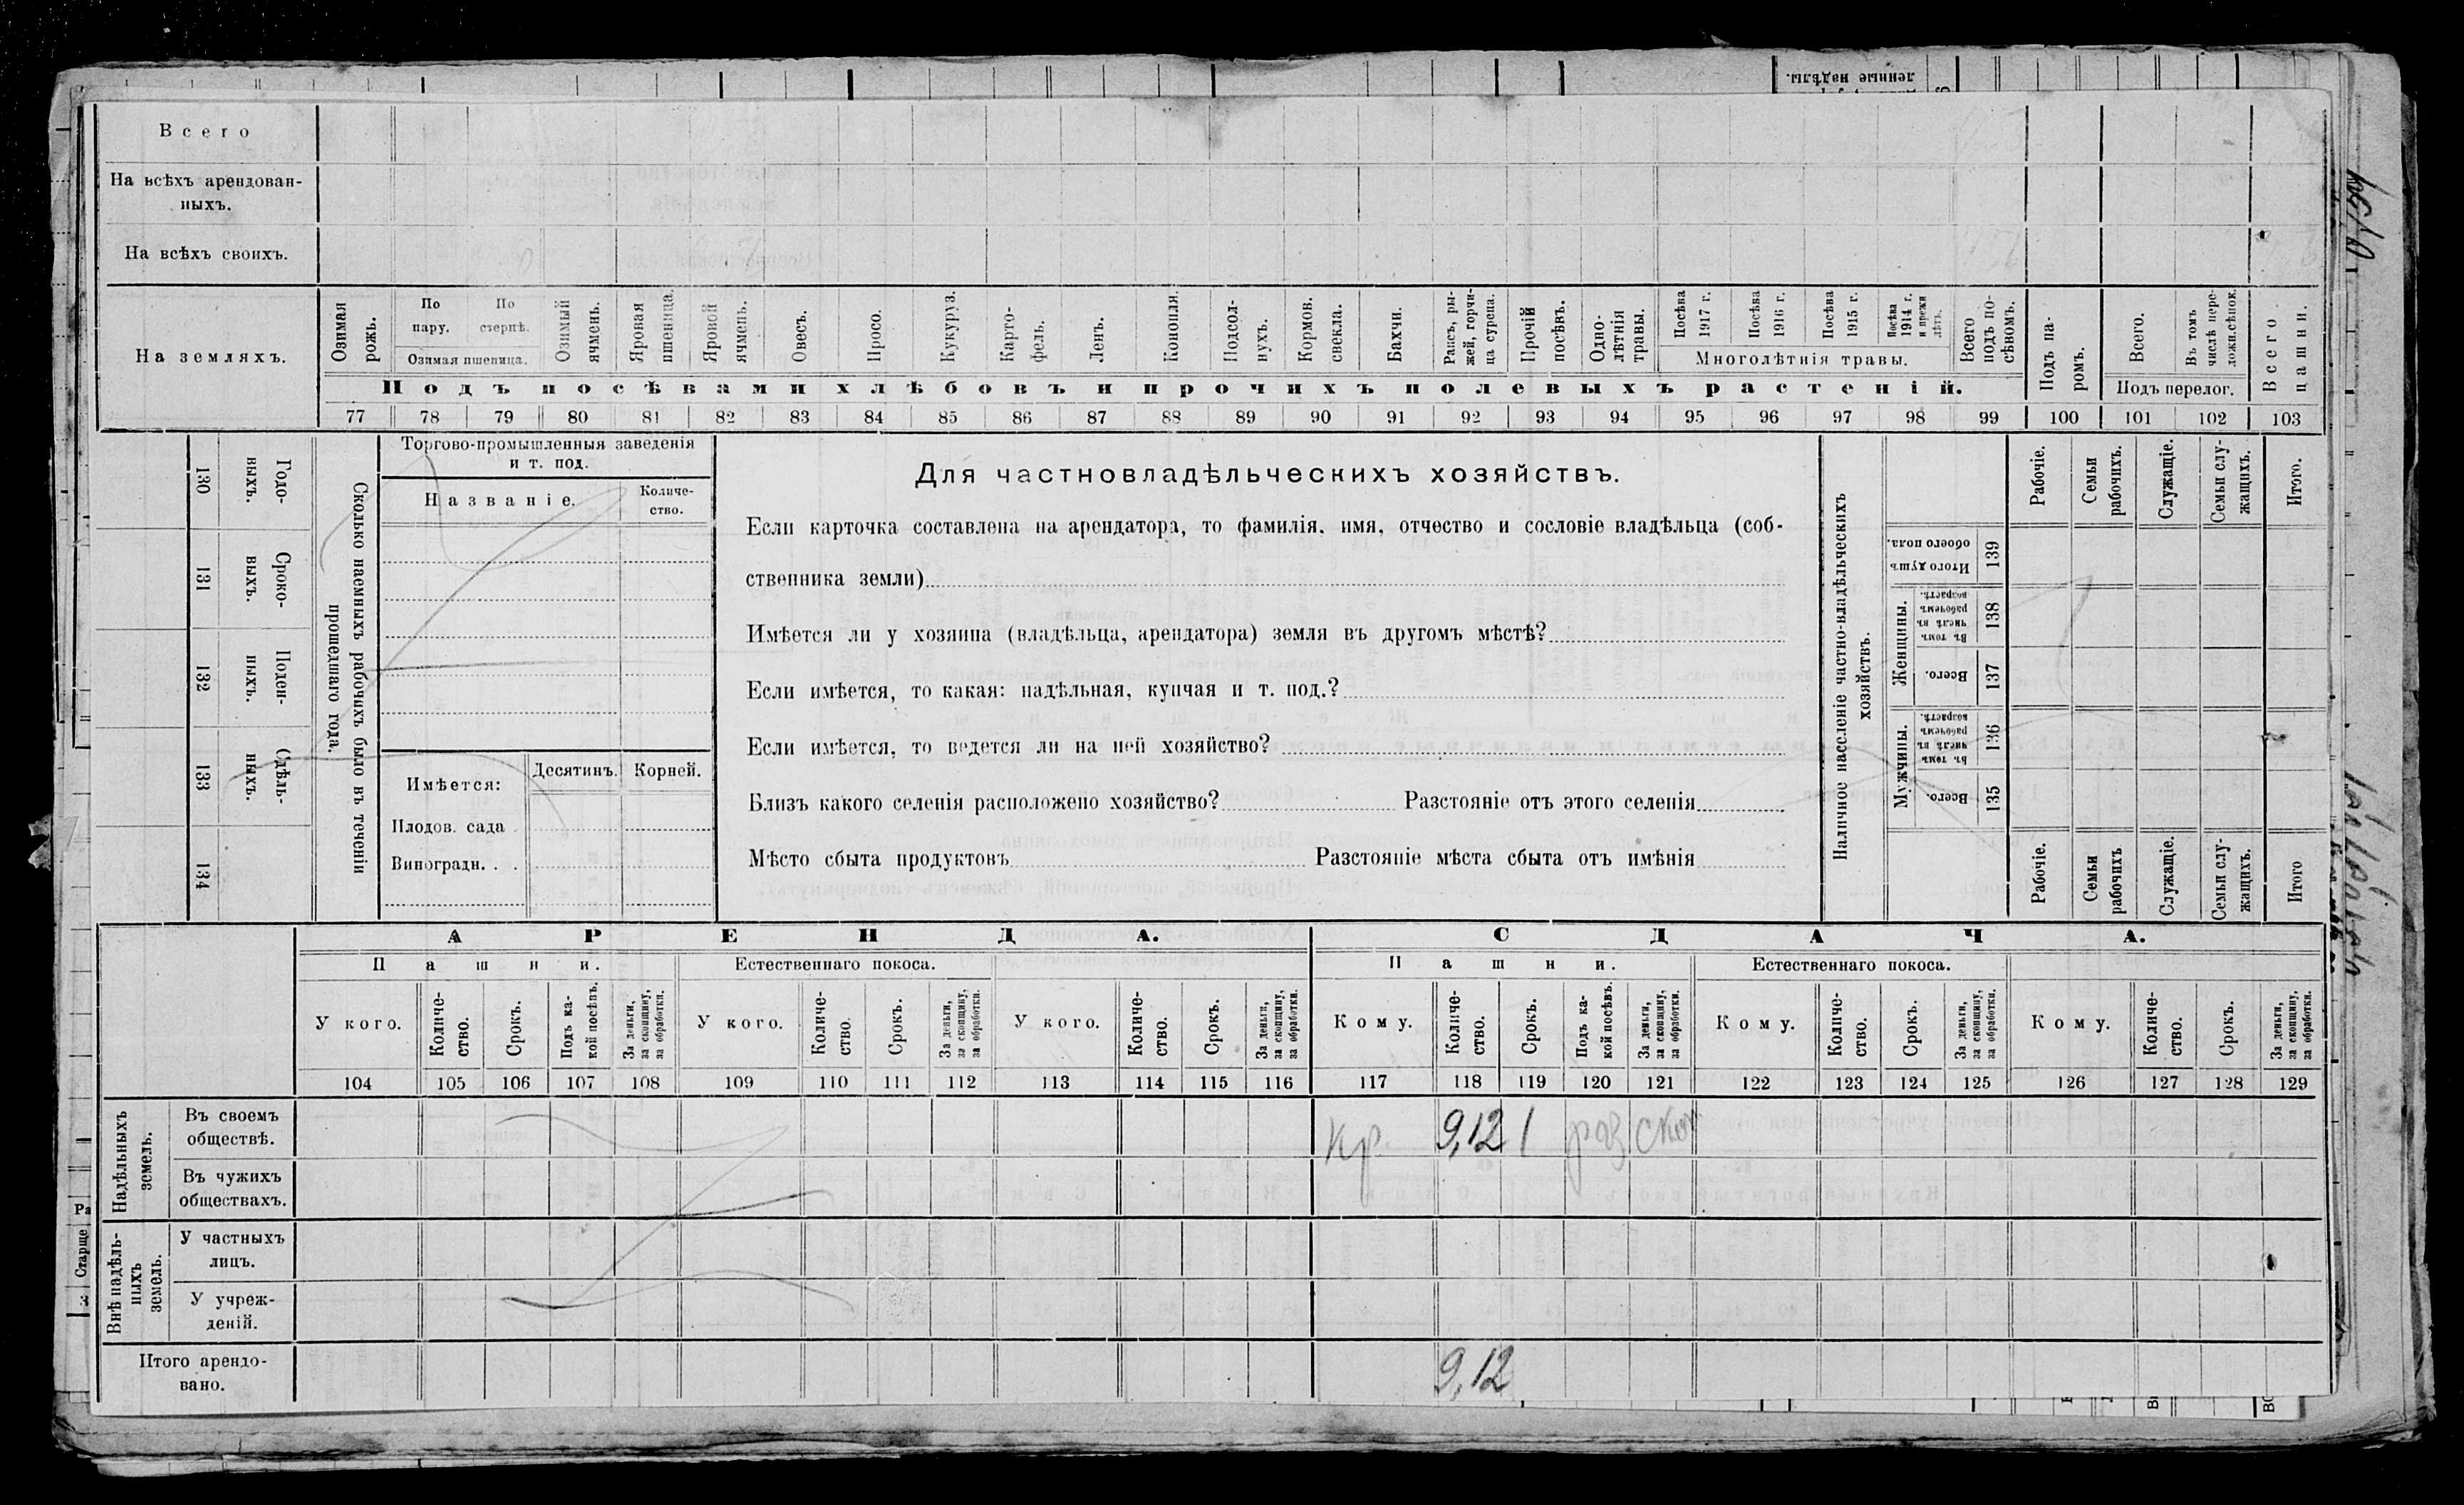 Всего
На всѣхъ арендован-
ныхъ.
На всѣхъ своихъ.
На земляхъ.
Озимая рожь.
По пару.
По стернѣ.
Озимая пшеница.
Озимый ячмень.
Яровая пшеница.
Яровой ячмень.
Овесъ.
Просо.
Кукуруз.
Карто-
фель.
Ленъ.
Конопля.
Подсол-
нухъ.
Кормов. свекла.
Бахчи.
Рапсъ, ры-
жей, горчи-
ца сурепа.
Прочій посѣвъ.
Одно-
лѣтнія травы.
Посѣва 1917 г.
Посѣва 1916 г.
Посѣва 1915 г.
Посѣва 1914 г. и прежн лѣтъ.
Многолѣтнія травы.
Всего подъ по-
сѣвомъ.
Подъ па-
ромъ.
Всего.
Въ томъ числѣ пере-
ложн.сѣнок.
Подъ перелог.
Всего пашни.
Подъ посѣвами хлѣбовъ и прочихъ полевыхъ растеній.
77 78 79 80 81 82 83 84 85 86 87 88 89 90 91 92 93 94 95 96 97 98 99 100 101 102 103
130 Годо-
ныхъ.
131 Сроко-
выхъ.
132 Поден-
ныхъ.
133 Сдѣль-
ныхъ.
134
Сколько наемныхъ рабочихъ было въ теченіи
прошедшаго года.
Торгово-промышленныя заведенія
и т. под.
Названіе.
Количе-
ство.
Имѣется:
Десятинъ.
Корней.
Плодов. сада
Виноградн. . .
Для частновладѣльческихъ хозяйствъ.
Если карточка составлена на арендатора, то фамилія, имя, отчество и сословіе владѣльца (соб-
ственника земли)
Имѣется ли у хозяина (владѣльца, арендатора) земля въ другомъ мѣстѣ?
Если имѣется, то какая: надѣльная, купчая и т. под.?
Если имѣется, то ведется ли на ней хозяйство?
Близъ какого селенія расположено хозяйство? Разстояніе отъ этого селенія
Мѣсто сбыта продуктовъ Разстояніе мѣста сбыта отъ имѣнія
Наличное населеніе частно-владѣльческихъ
хозяйствъ.
Рабочіе.
Семьи рабочихъ.
Служащіе.
Семьи слу-
жащихъ.
Итого.
Итого душъ обоего пола.
139
Женщины.
Въ томъ числѣ въ рабочемъ возрастѣ.
138
Всего.
137
Мужчины.
Въ томъ числѣ въ рабочемъ возрастѣ.
136
Всего.
135
Рабочіе.
Семьи рабочихъ
Служащіе.
Семьи слу-
жащихъ.
Итого
АРЕНДА. СДАЧА.
Пашни. Естественнаго покоса. Пашни. Естественнаго покоса.
У кого.
Количе-
ство.
Срокъ.
Подъ ка-
кой посѣвъ.
За деньги, за скопщину, за обработки.
У кого.
Количе-
ство.
Срокъ.
За деньги, за скопщину, за обработки.
У кого.
Количе-
ство.
Срокъ.
За деньги, за скопщину, за обработки.
Кому.
Количе-
ство.
Срокъ.
Подъ ка-
кой посѣвъ.
За деньги, за скопщину, за обработки.
Кому.
Количе-
ство.
Срокъ.
За деньги, за скопщину, за обработки.
Кому.
Количе-
ство.
Срокъ.
За деньги, за скопщину, за обработки.
104 105 106 107 108 109 110 111 112 113 114 115 116 117 118 119 120 121 122 123 124 125 126 127 128 129
Надѣльныхъ земель.
Въ своемъ
обществѣ.
кр. 9,12 1 раз скоп
Въ чужихъ
обществахъ.
Внѣ надѣль-
ныхъ земель.
У частныхъ
лицъ.
У учреж-
деній.
Итого арендо-
вано.
9,12